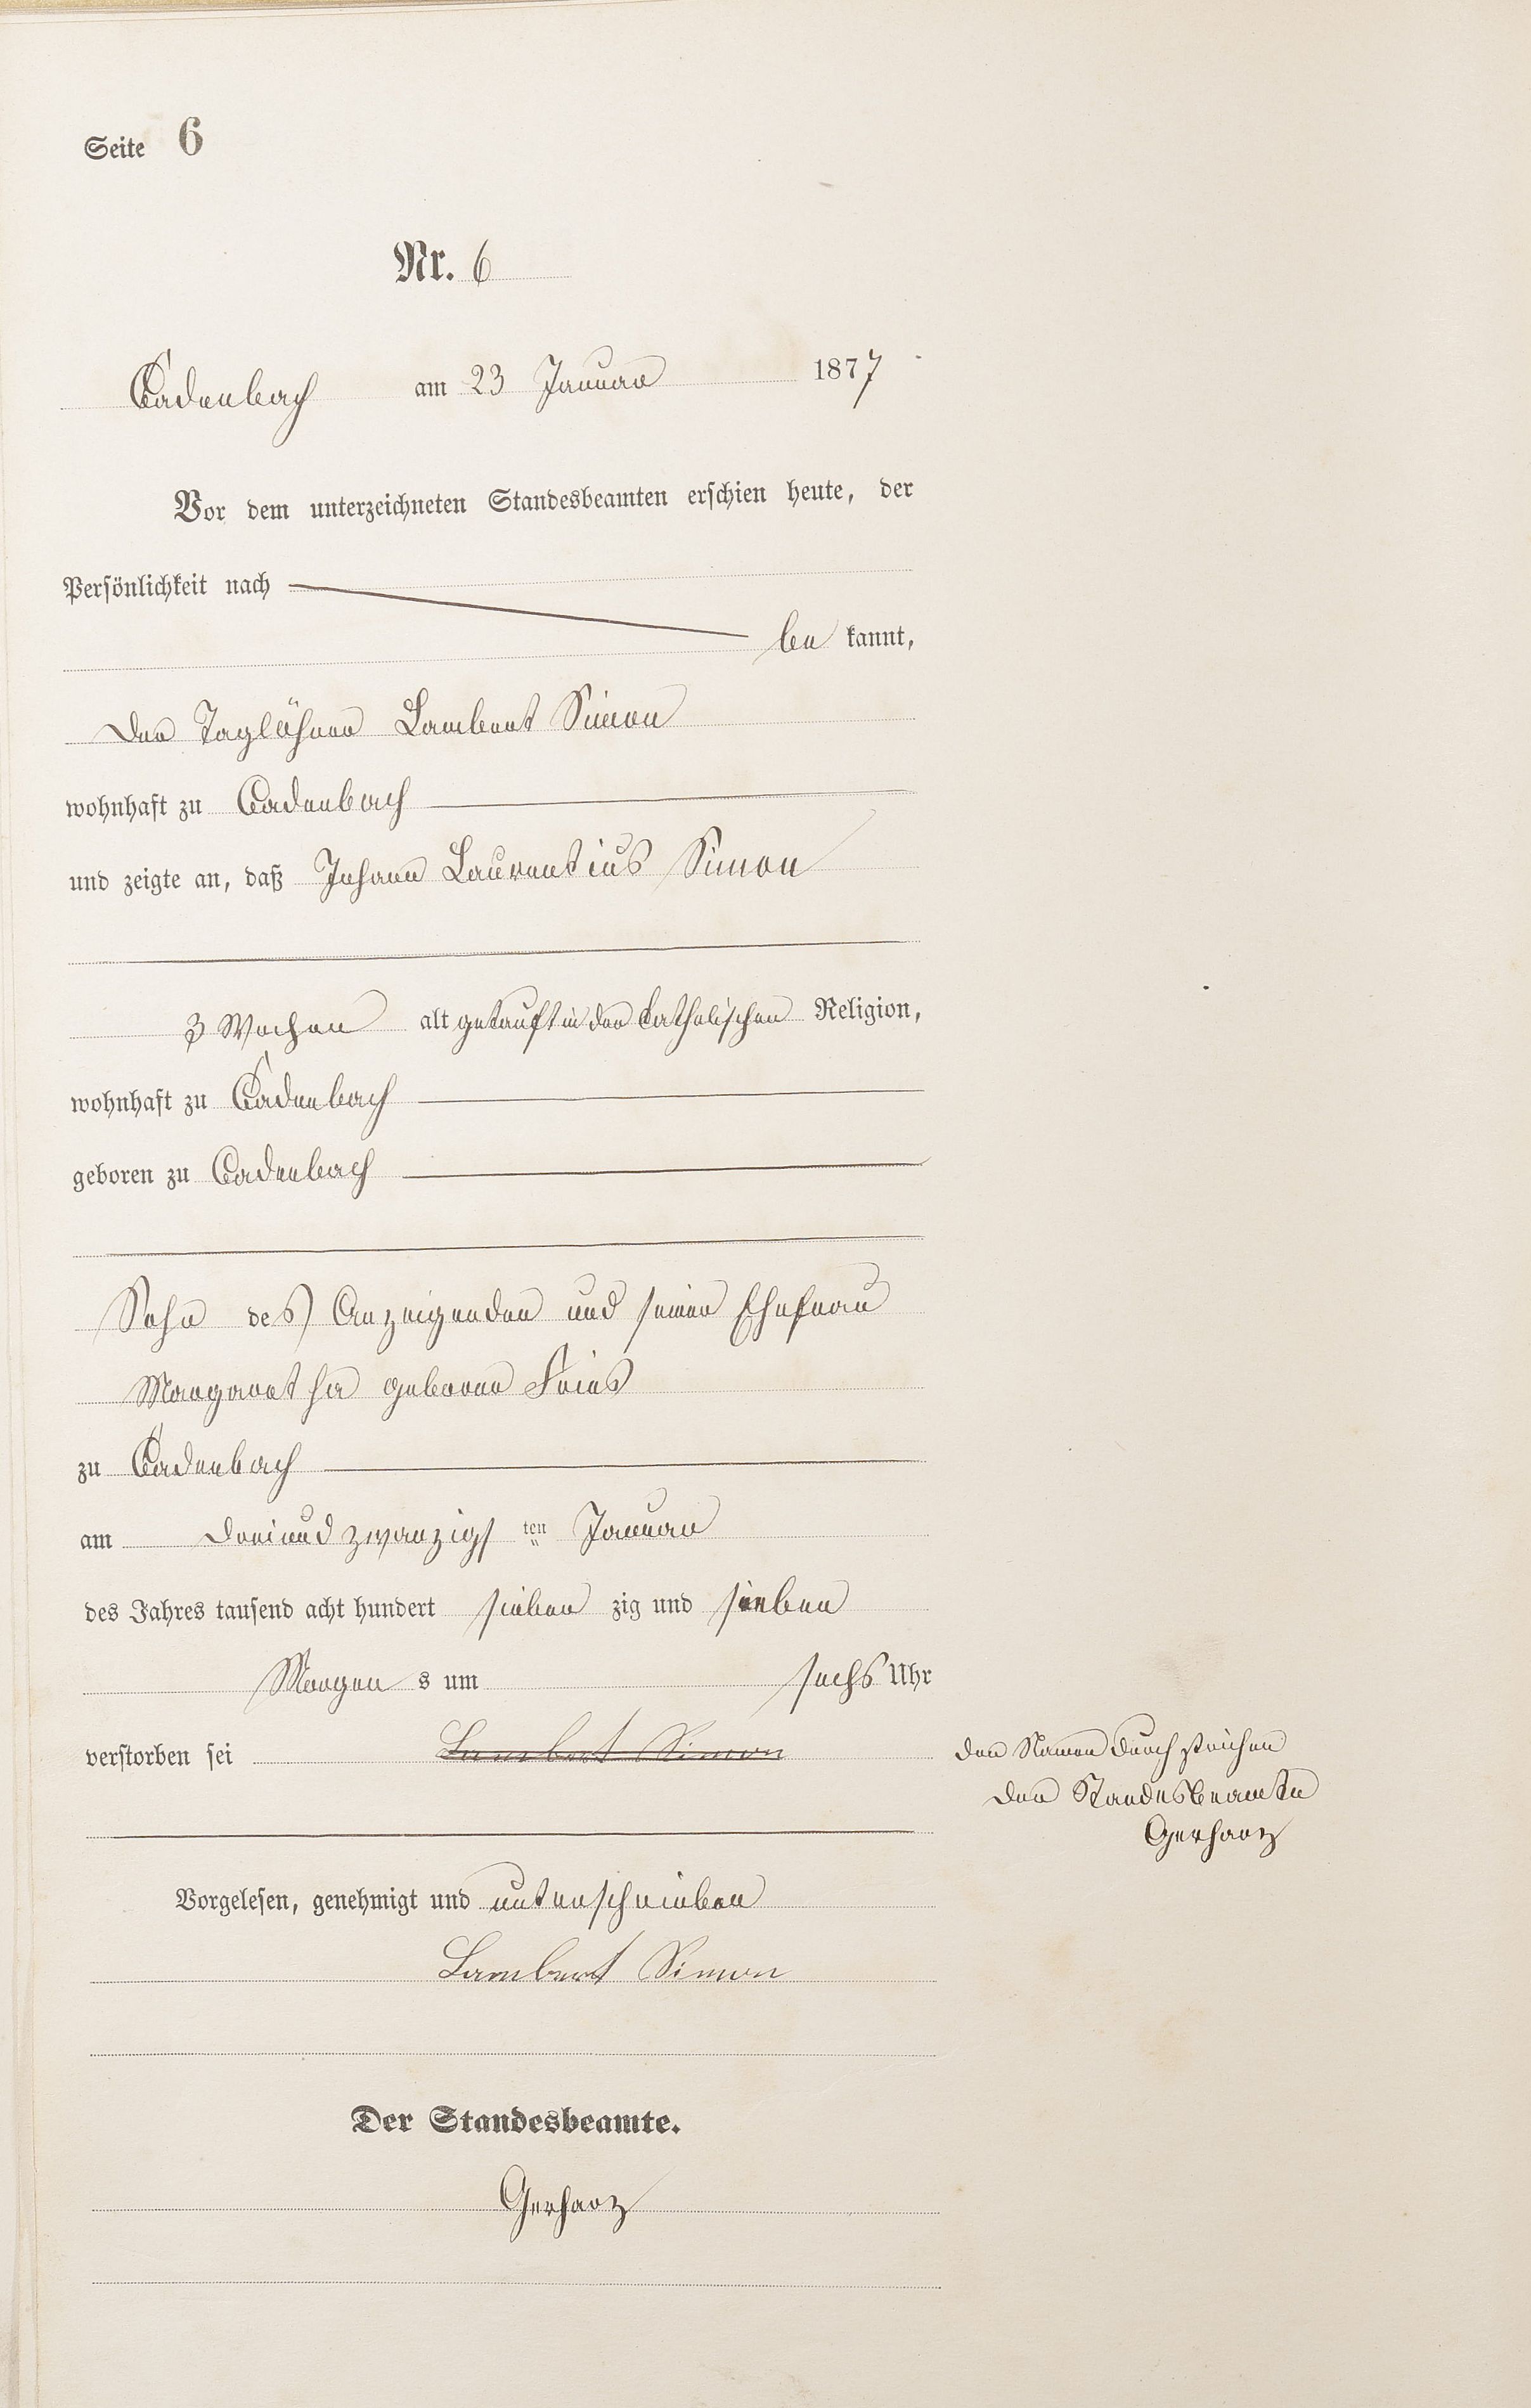 Seite 6
Nr. 6
Cadenbach am 23 Januar 1877
Vor dem unterzeichneten Standesbeamten erschien heute, der
Persönlichkeit nach
be kannt,
der Taglöhner Lambert Simon
wohnhaft zu Cadenbach
und zeigte an, daß Johann Laurentius Simon
3 Wochen alt getauft in der Catholischen Religion,
wohnhaft zu Cadenbach
geboren zu Cadenbach
Sohn des Anzeigenden und seiner Ehefrau
Margaretha geborne Fries
zu Cadenbach
am dreiundzwanzigs ten Januar
des Jahres tausend acht hundert sieben zig und sieben
Morgen s um sechs Uhr
verstorben sei Lambert Simon
den Namen durch strichen
der Standesbeamte
Gerharz
Vorgelesen, genehmigt und unterschrieben
Lambert Simon
Der Standesbeamte.
Gerharz